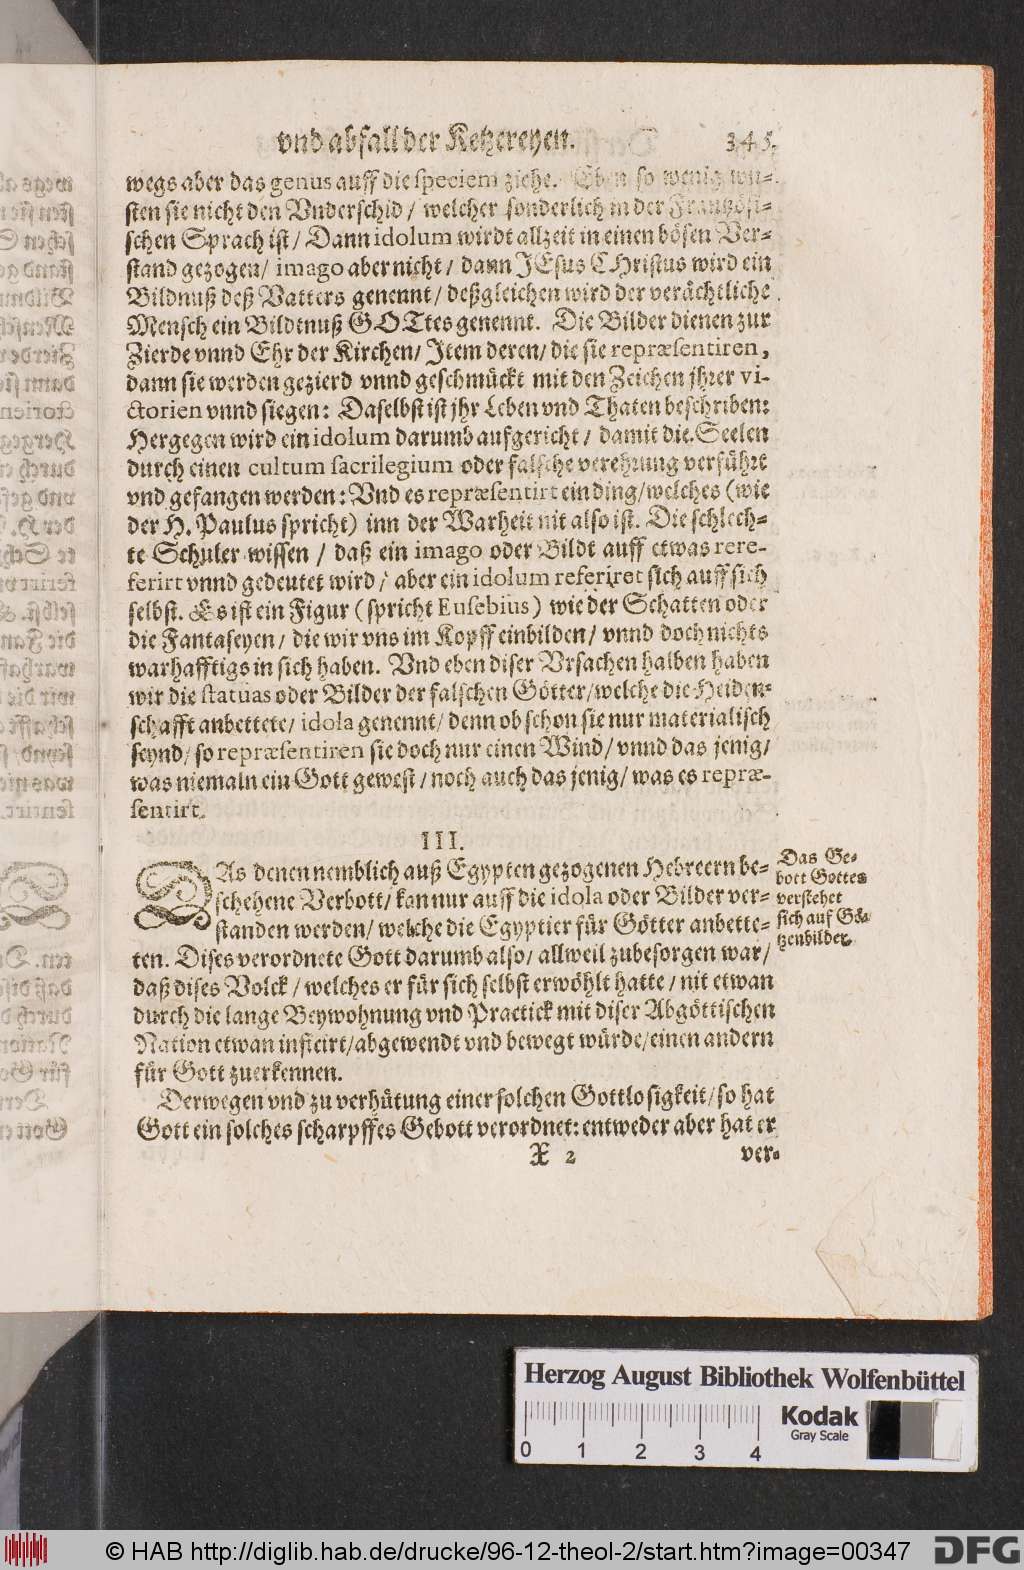 vnd abfall der Ketzereyen. 345.
wegs aber das genus auff die speciem ziehe. Eben so wenig wu-
sten sie nicht den Vnderschid / welcher sonderlich in der Frantzösi-
schen Sprach ist / Dann idolum wirdt allzeit in einen bösen Ver-
stand gezogen / imago aber nicht / dann JEsus CHristus wird ein
Bildnuß deß Vatters genennt / deßgleichen wird der verächtliche
Mensch ein Bildtnuß GOTtes genennt. Die Bilder dienen zur
Zierde vnnd Ehr der Kirchen / Item deren / die sie repræsentiren,
dann sie werden gezierd vnnd geschmückt mit den Zeichen jhrer vi-
ctorien vnnd siegen: Daselbst ist jhr Leben vnd Thaten beschriben:
Hergegen wird ein idolum darumb auffgericht / damit die Seelen
durch einen cultum sacrilegium oder falsche verehrung verführt
vnd gefangen werden: Vnd es repræsentirt ein ding / welches (wie
der H. Paulus spricht) inn der Warheit nit also ist. Die schlech-
te Schuler wissen / daß ein imago oder Bildt auff etwas rere-
ferirt vnnd gedeutet wird / aber ein idolum referiret sich auff sich
selbst. Es ist ein Figur (spricht Eusebius) wie der Schatten oder
die Fantaseyen / die wir vns im Kopff einbilden / vnnd doch nichts
warhafftigs in sich haben. Vnd eben diser Vrsachen halben haben
wir die statuas oder Bilder der falschen Götter / welche die Heiden-
schafft anbettete / idola genennt / denn ob schon sie nur materialisch
seynd / so repræsentiren sie doch nur einen Wind / vnnd das jenig /
was niemaln ein Gott gewest / noch auch das jenig / was es repræ-
sentirt.
III.
DAs denen nemblich auß Egypten gezogenen Hebreern be-
schehene Verbott / kan nur auff die idola oder Bilder ver-
standen werden / welche die Egyptier für Götter anbette-
ten. Dises verordnete Gott darumb also / allweil zubesorgen war /
daß dises Volck / welches er für sich selbst erwöhlt hatte / nit etwan
durch die lange Beywohnung vnd Practick mit diser Abgöttischen
Nation etwan inficirt / abgewendt vnd bewegt würde / einen andern
für Gott zuerkennen.
Das Ge-
bott Gottes
verstehet
sich auf Gö-
tzenbilder.
Derwegen vnd zu verhütung einer solchen Gottlosigkeit / so hat
Gott ein solches scharpffes Gebott verordnet: entweder aber hat er
X 2 ver-
Herzog August Bibliothek Wolfenbüttel
Kodak
Gray Scale
0 1 2 3 4
© HAB http://diglib.hab.de/drucke/96-12-theol-2/start.htm?image=00347
DFG